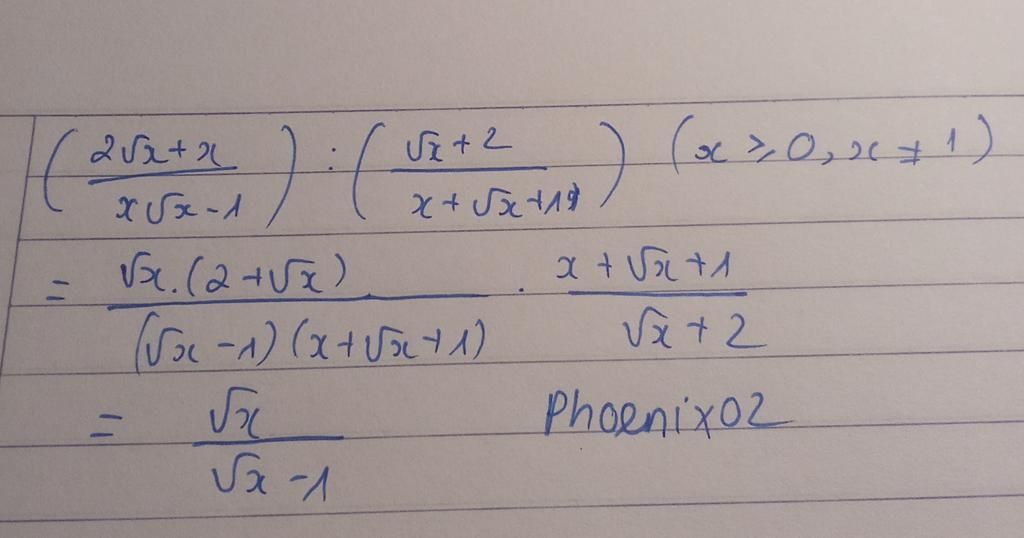 (2√x+x / x√x-1) : (√x+2 / x+√x+1) (x ≥ 0, x ≠ 1)
= √x.(2+√x) / (√x-1)(x+√x+1) . x+√x+1 / √x+2
= √x / √x-1 Phoenix02